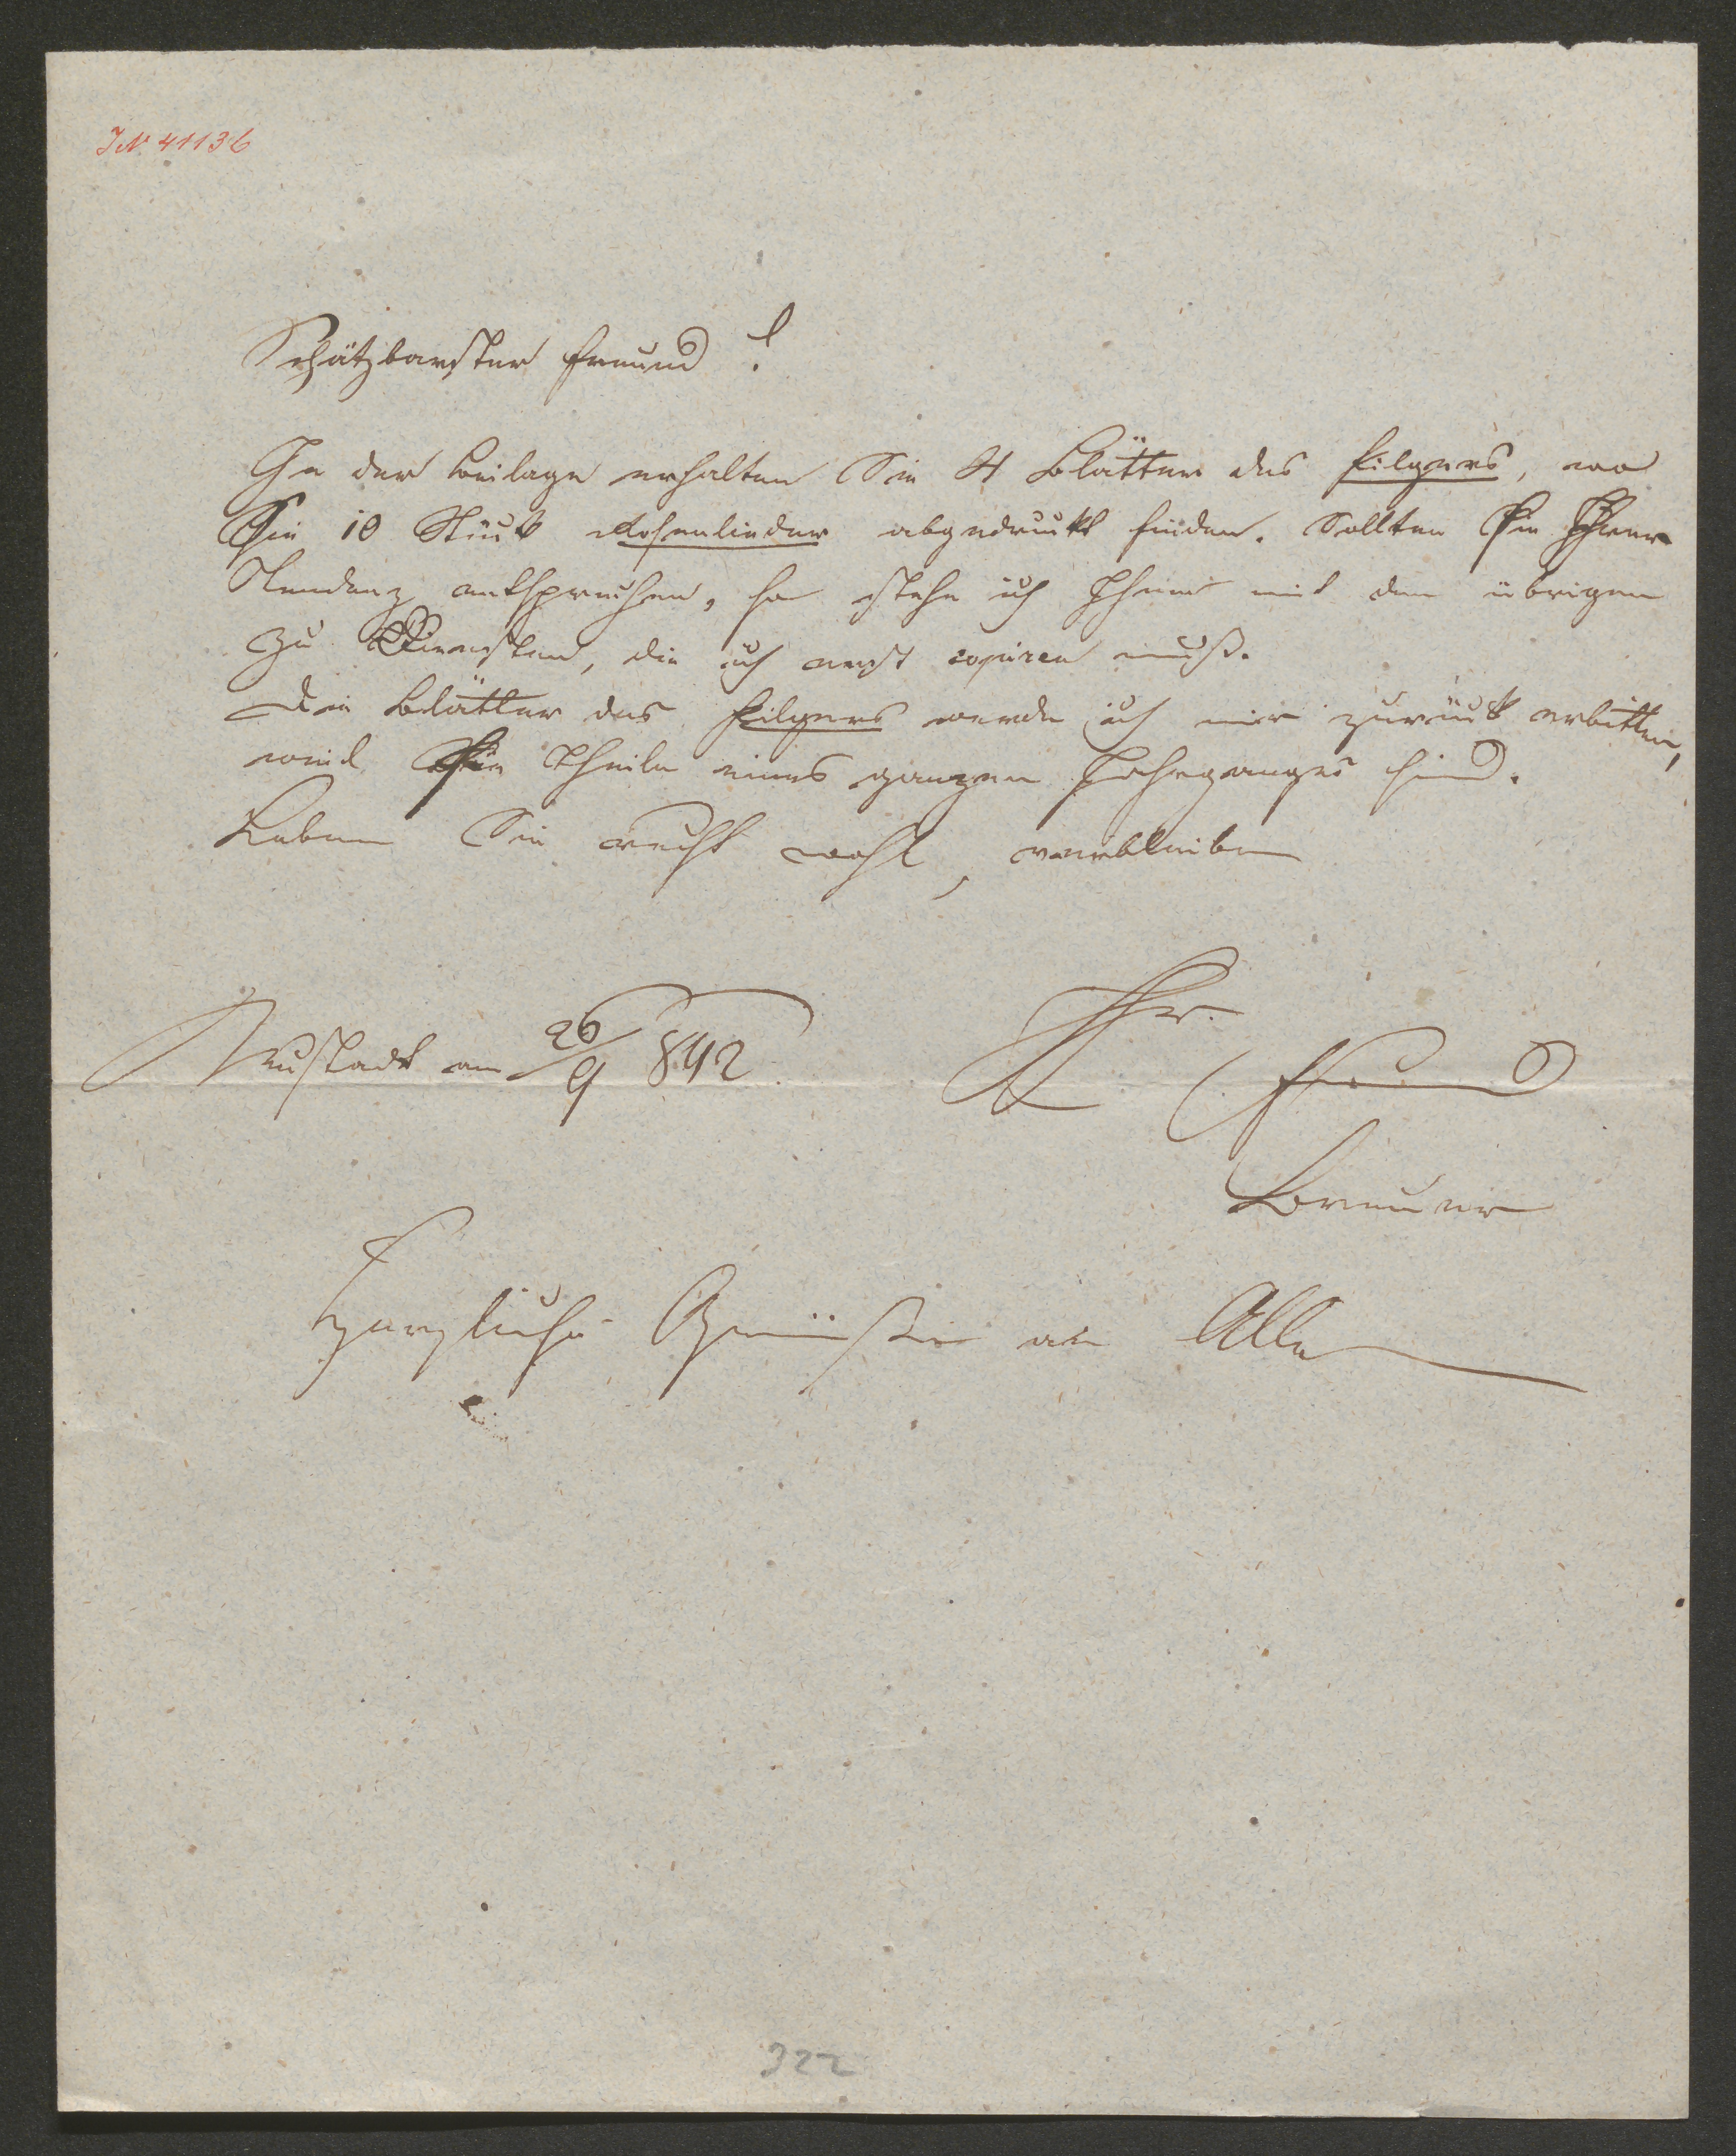 IN 41136
Schätzbarster Freund!
In der Beilage erhalten Sie 4 Blätter des Pilgers, wo
Sie 10 Stück Rosenlieder abgedruckt finden. Sollten sie Ihrer
Tendenz entsprechen, so stehe ich Ihnen mit den übrigen
zu Diensten, die ich erst copiren muß.
Die Blätter des Pilgers werde ich mir zurück erbitten,
weil sie Theile eines ganzen Jahrganges sind.
Leben Sie recht wohl, verbleibe
Neustadt am 26/9 842
Ihr
Freund
Breuer
Herzliche Grüße an Alle
322